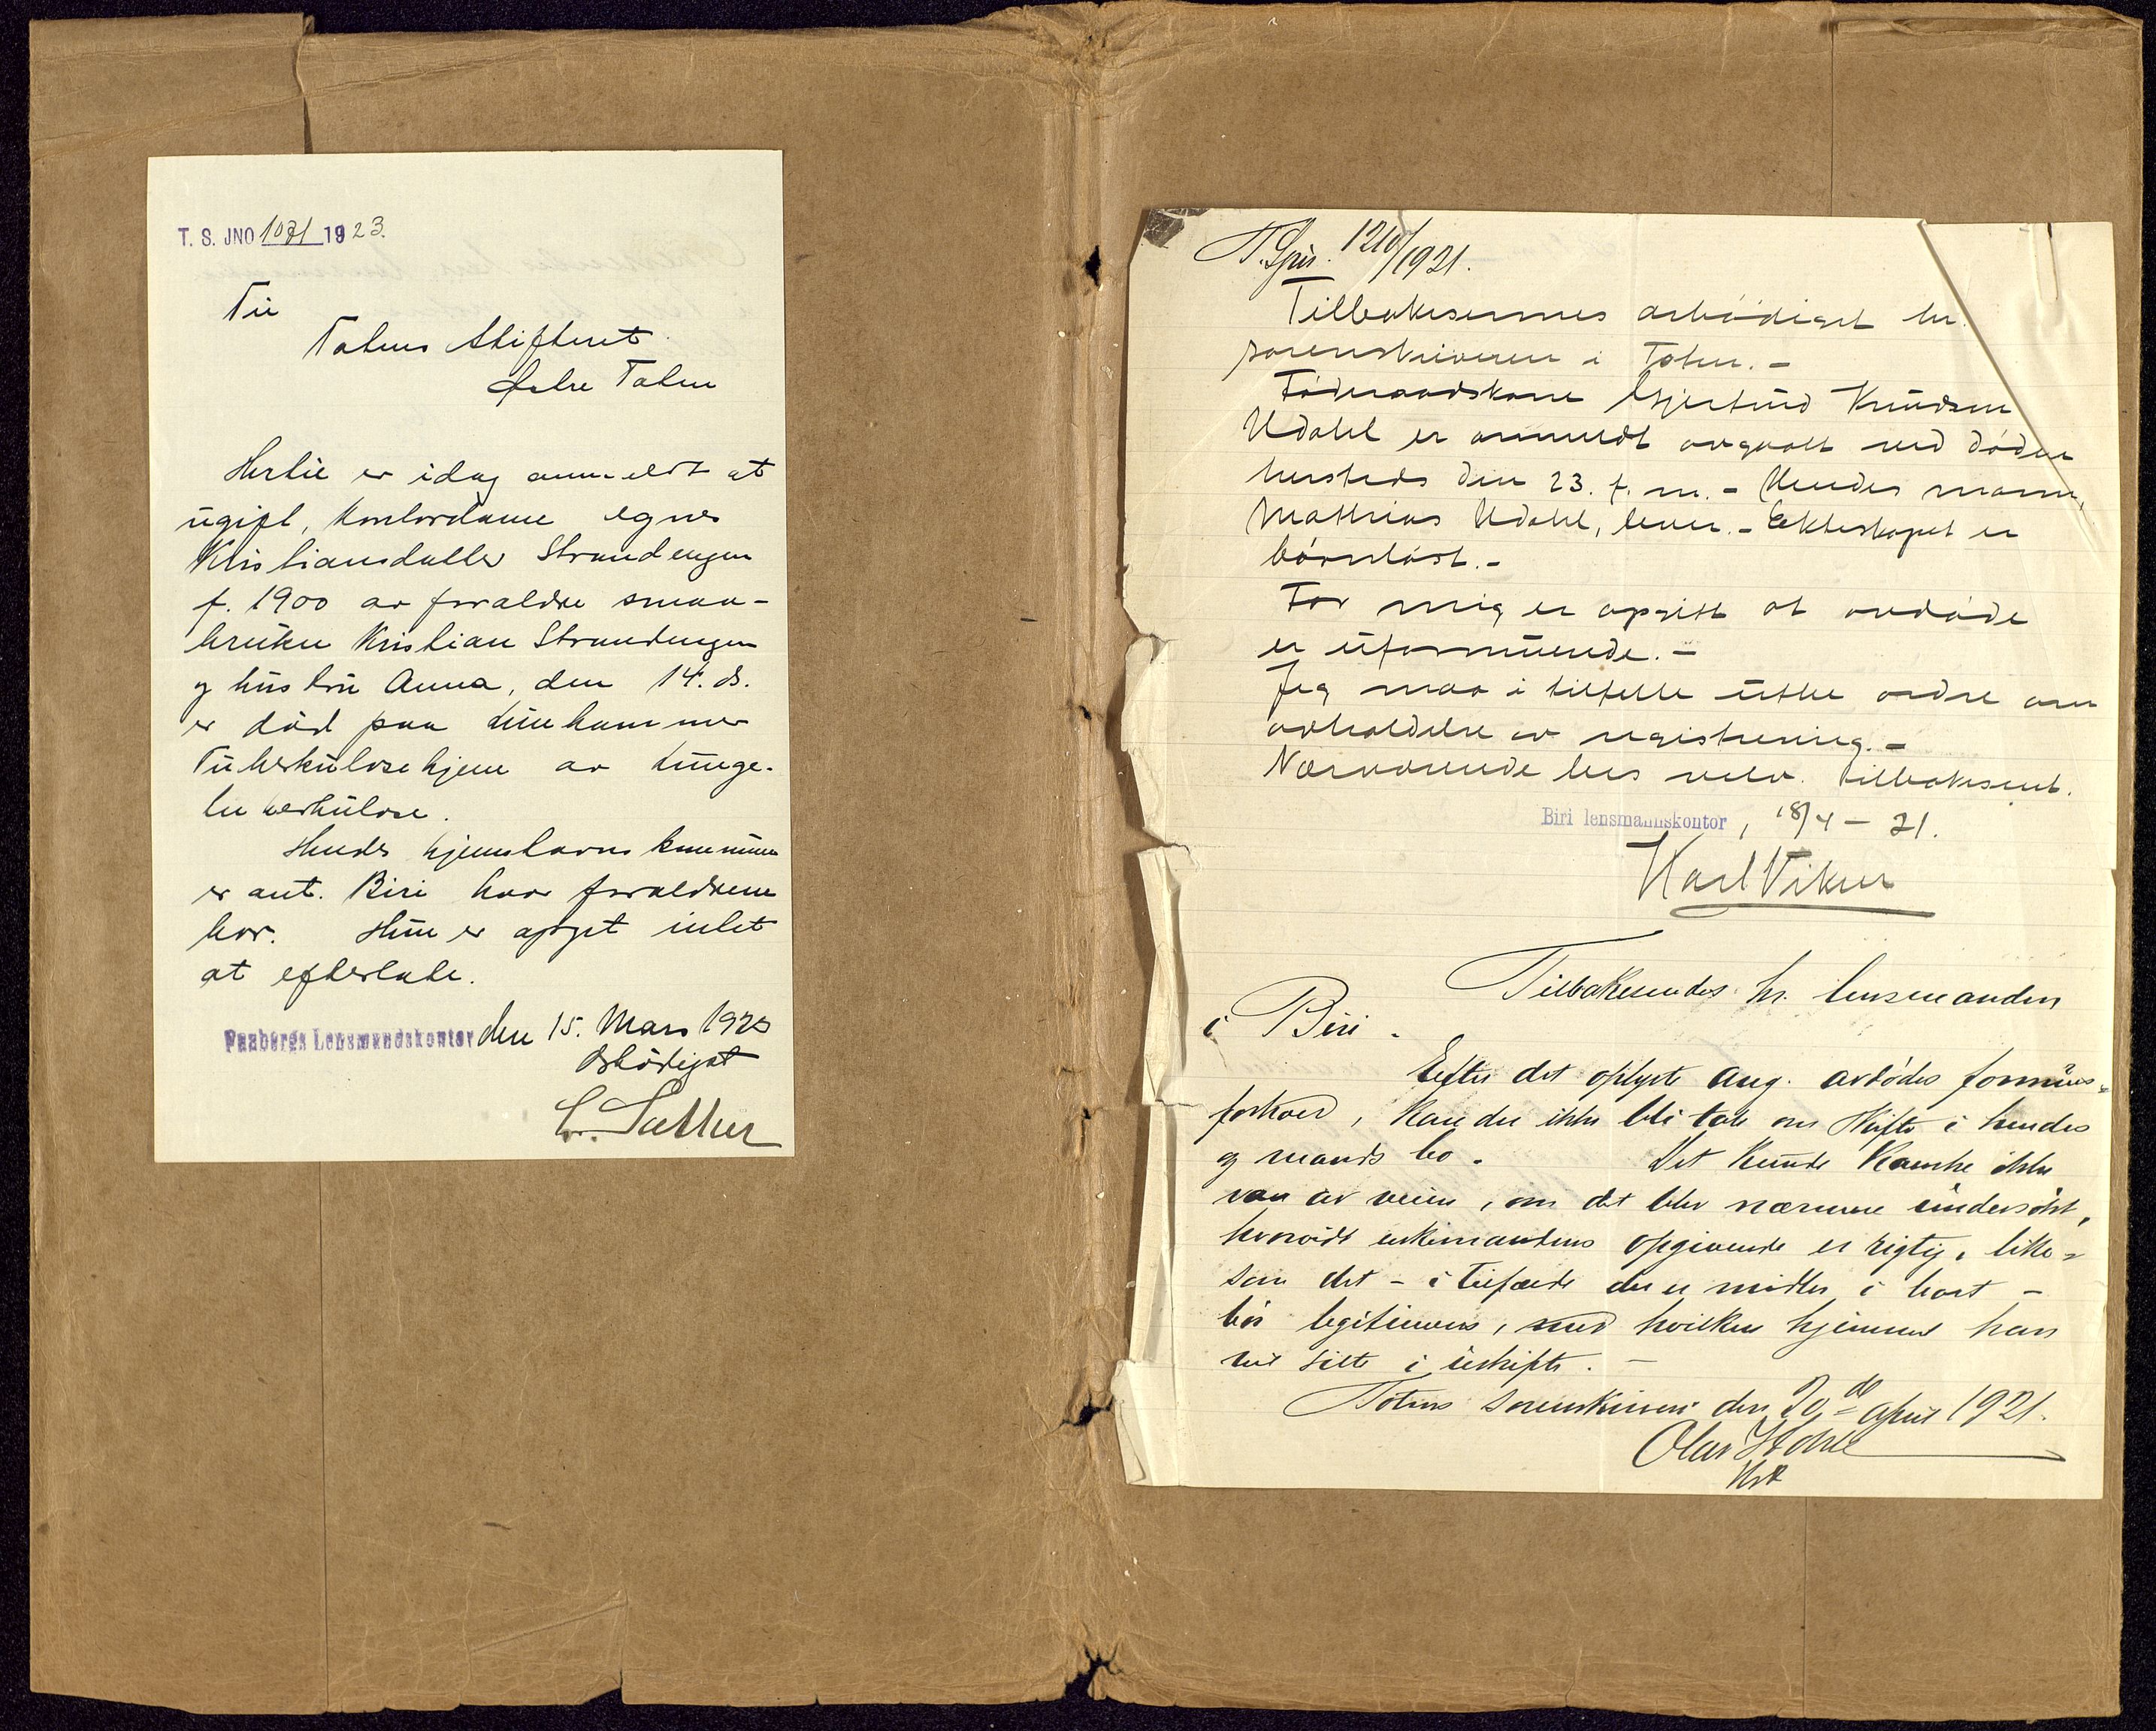 T. S. JNO 1071 1923.
Til
Totens Skifteret.
Østre Toten
Hertil er idag anmeldt at
ugift, kontordame Agnes
Kristiansdatter Strandengen
f. 1900 av foraldre smaa-
bruker Kristian Strandengen
og hustru Anna, den 14. ds.
er død paa Lillehammer
Tuberkulosehjem av lunge-
tuberkulose.
Hendes hjemstavns kommune
er ant. Biri hvor foraldrene
bor. Hun er opgit intet
at efterlate.
Faabergs Lensmandskontor den 15. Mars 1923
Ærbødigst
T. S. jnr. 1210/1921.
Tilbakesennes ærbødigst hr.
sorenskriveren i Toten. -
Føderaadskone Gjertrud Knudsen
Udahl er anmeldt avgaatt ved døden
hersteds den 23. f. m. - Hendes mann,
Mathias Udahl, lever. - Ekteskapet er
barnløst. -
For mig er opgitt at avdøde
er uformuende. -
Jeg maa i tilfelle utbe ordre om
avholdelse av registrering. -
Nærværende bes velv. tilbakesent.
Biri lensmannskontor, 18/4 - 21.
Karl Viken
Tilbakesendes hr. lensmanden
i Biri.
Efter det oplyste ang. avdødes formues-
forhold, kan der ikke bli tale om skifte i hendes
og mands bo. Det kunde kanske ikke
være av veien, om det blev nærmere undersøkt,
hvorvidt enkemandens opgivende er rigtig, like-
som det - i tilfælde der er midler i boet -
bør legitimeres, med hvilken hjemmel han
vil sitte i uskifte. -
Totens sorenskriveri den 20de april 1921.
Olav